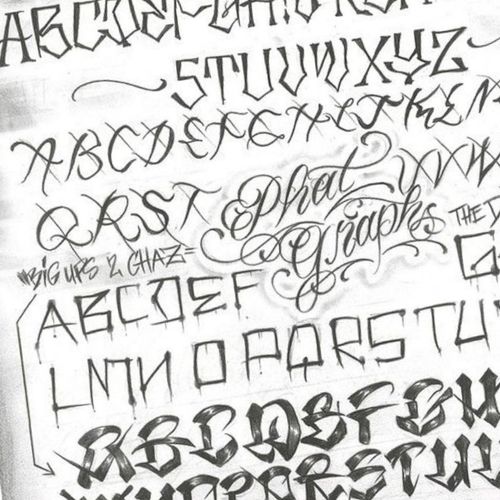 ABCDEFGHIJKLM
STUVWXYZ
ABCDEFGHIJKLMN
QRST
Phat
Graphs
THE
"BIG UPS 2 GHAZ"
ABCDEF G
LMNOPQRSTU
ABCDEFGH
NOPQRSTUV